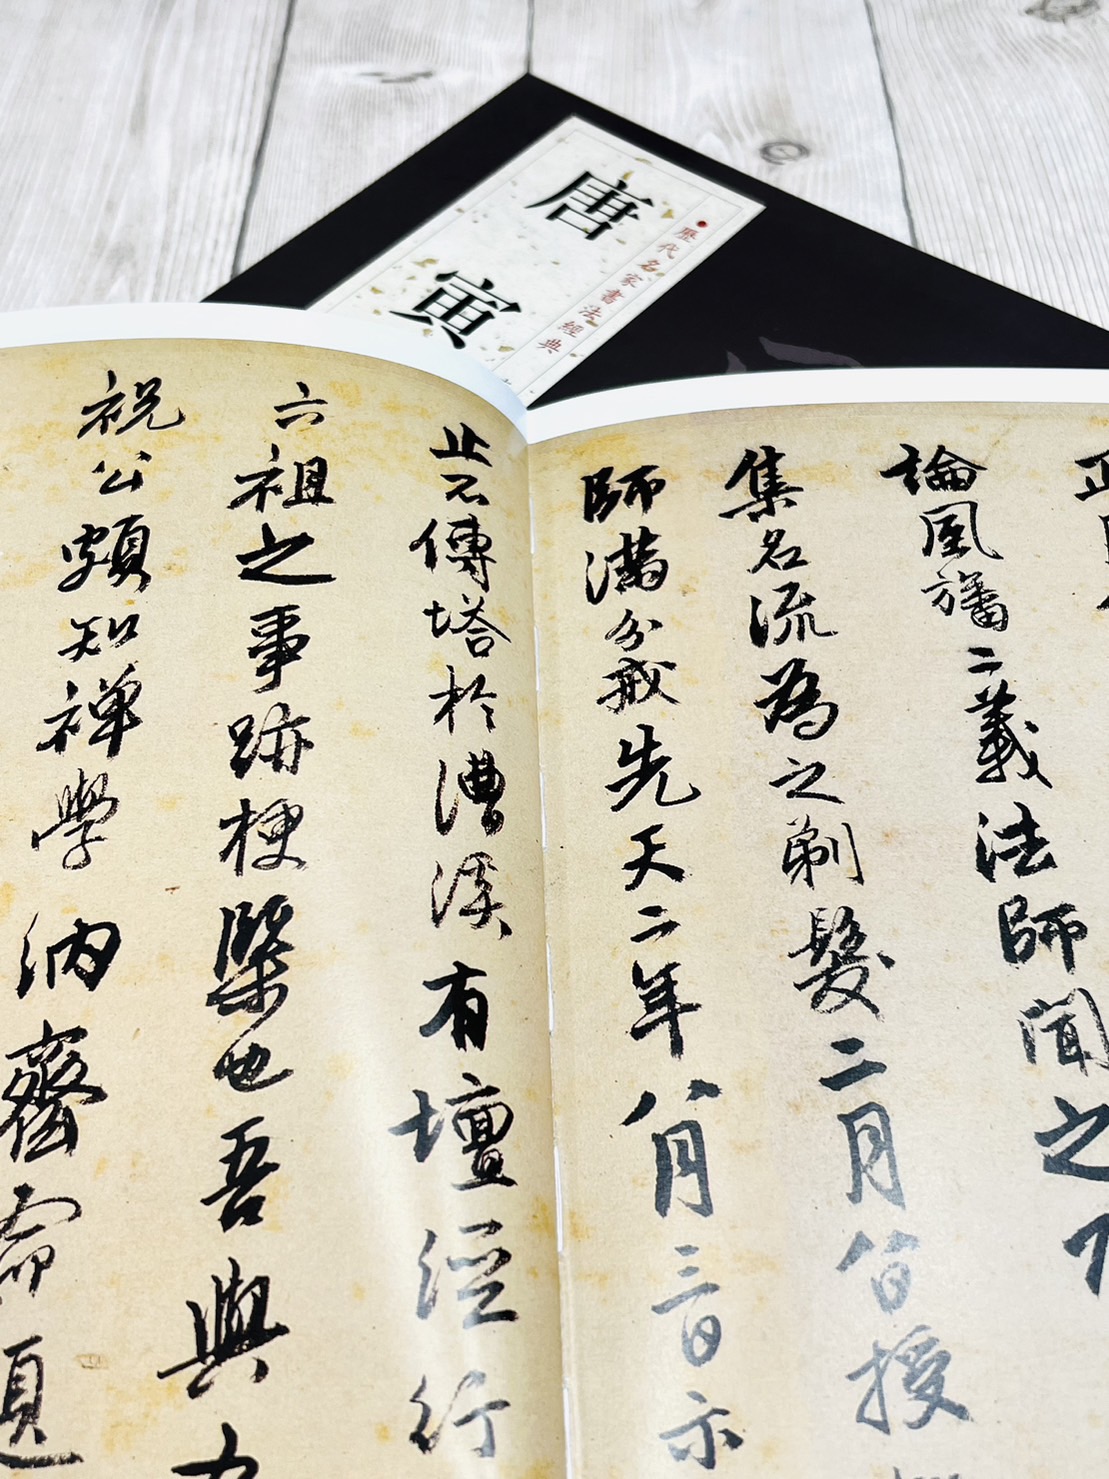 唐寅
歷代名家書法經典
論風旛二義法師聞之
集名流為之剃髮二月八日授
師滿分戒先天二年八月三日示
傳塔於漕溪有壇經行
六祖之事跡梗槩也吾與
祝公頗知禪學納齋